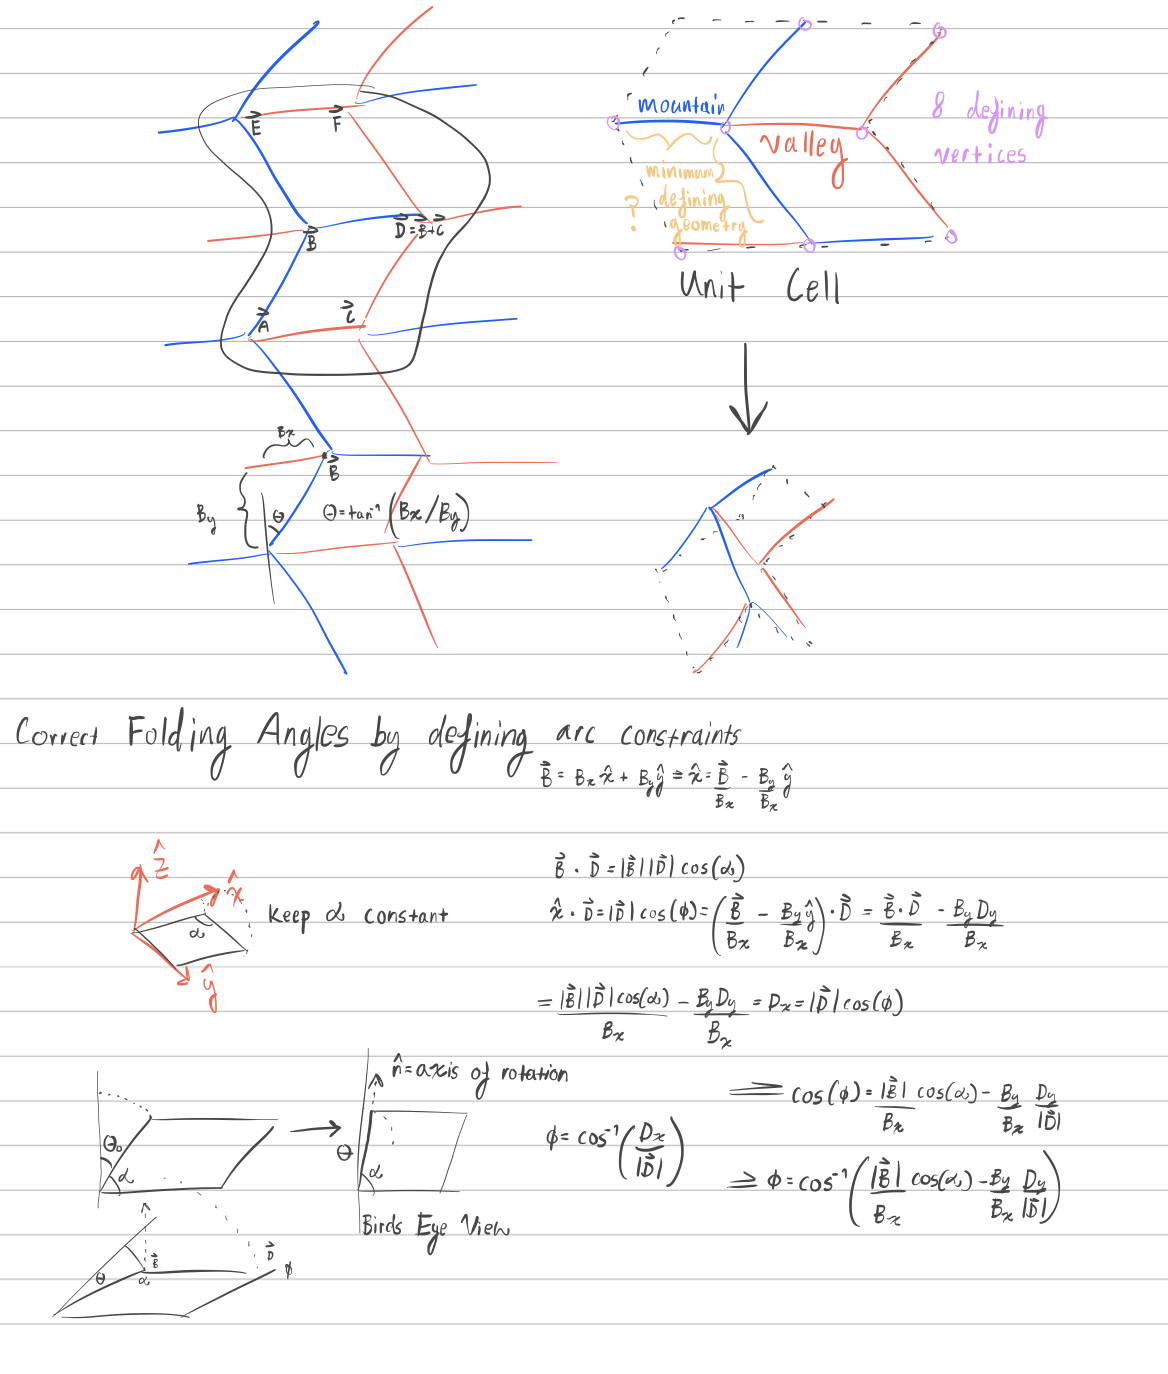 E⃗
F⃗
B⃗
D⃗=B⃗+C⃗
A⃗
C⃗
Bx
B⃗
By
θ
θ=tan⁻¹(Bx/By)
mountain
valley
8 defining
vertices
minimum
defining
geometry
?
Unit Cell
Correct Folding Angles by defining arc constraints
B⃗ = Bx x̂ + By ŷ ⇒ x̂ = B⃗/Bx - By/Bx ŷ
ẑ
x̂
ŷ
α
Keep α constant
B⃗ · D⃗ = |B⃗||D⃗| cos(α)
x̂ · D⃗ = |D⃗| cos(ϕ) = (B⃗/Bx - By ŷ/Bx) · D⃗ = B⃗·D⃗/Bx - By Dy/Bx
= |B⃗||D⃗|cos(α)/Bx - By Dy/Bx = Dx = |D⃗| cos(ϕ)
θ₀
α
n̂ = axis of rotation
θ
α
Birds Eye View
ϕ = cos⁻¹(Dx/|D⃗|)
⟹ cos(ϕ) = |B⃗|/Bx cos(α) - By/Bx Dy/|D⃗|
⇒ ϕ = cos⁻¹(|B⃗|/Bx cos(α) - By/Bx Dy/|D⃗|)
θ
B⃗
α
D⃗
ϕ